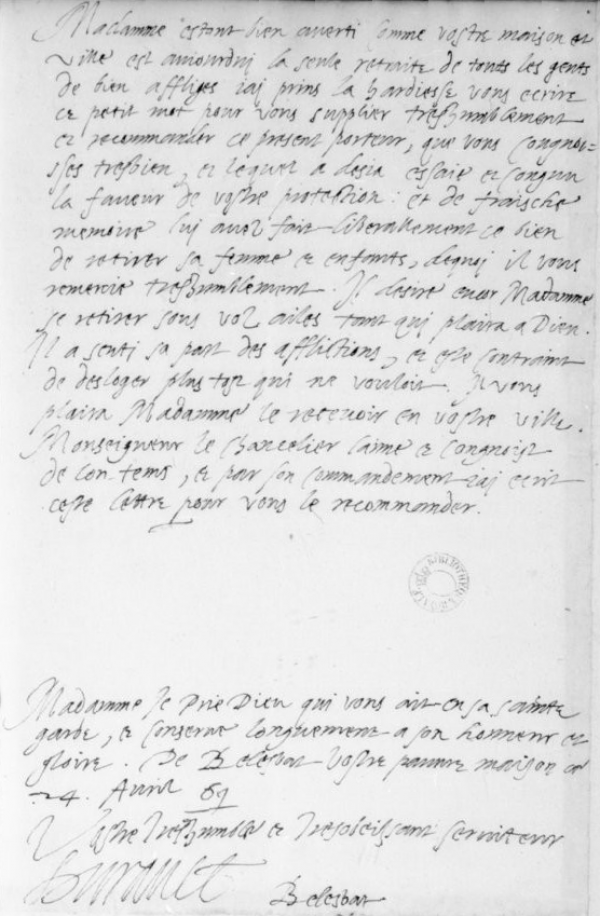 Madamme estant bien averti comme vostre maison et
ville est aujourdhuj la seule retraite de touts les gents
de bien affliges iaj prins la hardiesse vous ecrire
ce petit mot pour vous supplier treshumblement
et recommander ce present porteur, que vous congnoi-
sses tresbien, et lequel a desia essaie et congnu
la faveur de vostre protection : et de fraische
memoire luj avez fait liberallement ce bien
de retirer sa femme et enfants, dequoj il vous
remercie treshumblement. Il desire encor Madamme
se retirer sous voz ailes tant qui plaira a Dieu.
Il a senti sa part des afflictions, et este contraint
de desloger plus tost qui ne vouloit. Il vous
plaira Madamme le recevoir en vostre ville.
Monseigneur le Chancelier l'aime et congnoist
de lon-tems, et par son commandement iaj ecrit
ceste lettre pour vous le recommander.
Madamme Je Prie Dieu qui vous ait en sa sainte
garde, et conserve longuement a son honneur et
gloire. De Belesbat vostre pauvre maison ce
24. Avril 69
Vostre treshumble et tresobeissant serviteur
Hurault Belesbat